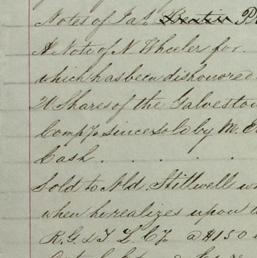 Notes of Jas. P
A Note of N Wheeler for
which has been dishonored
20 Shares of the Galveston
Compy since sold by M. E
Cash . . . . .
Sold to Wd. Stillwell w
when he realizes upon
R.G. & T L. Cy. @ $150